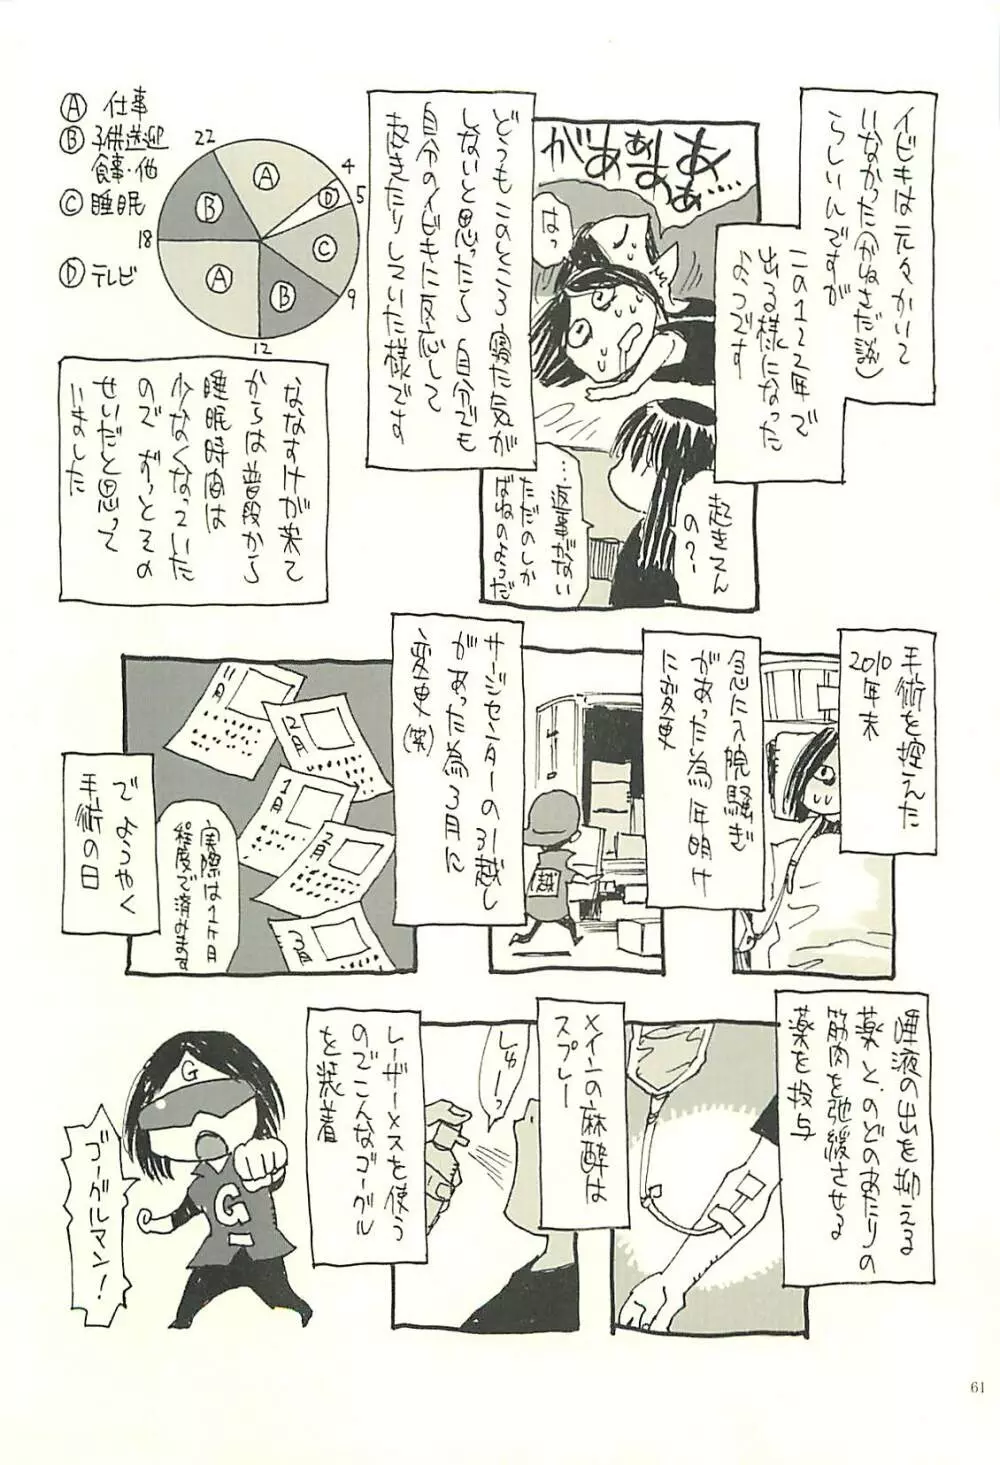 イビキは元々かいて
いなかった(かねきだ談)
らしいんですが
この1〜2年で
出る様になった
ようです
があぁあぁあぁ……
はっ
どうもこのところ寝た気が
しないと思ったら自分でも
自分のイビキに反応して
起きたりしていた様です
起きてん
の?
…返事がない
ただのしか
ばねのようだ
Ⓐ 仕事
Ⓑ 子供送迎
食事・他
Ⓒ 睡眠
Ⓓ テレビ
22
4
5
9
12
18
A
D
C
B
A
B
ななすけが来て
からは普段から
睡眠時間は
少なくなっていた
のでずっとその
せいだと思って
いました
手術を控えた
2010年末
急に入院騒ぎ
があった為年明け
に変更
サージセンターの引越し
があった為3月に
変更(笑)
越
11月
12月
1月
2月
3月
実際は1ヶ月
程度で済みます
でようやく
手術の日
唾液の出を抑える
薬と、のどのあたりの
筋肉を弛緩させる
薬を投与
メインの麻酔は
スプレー
しゅーっ
レーザーメスを使う
のでこんなゴーグル
を装着
G
G
ゴーグルマン!
61